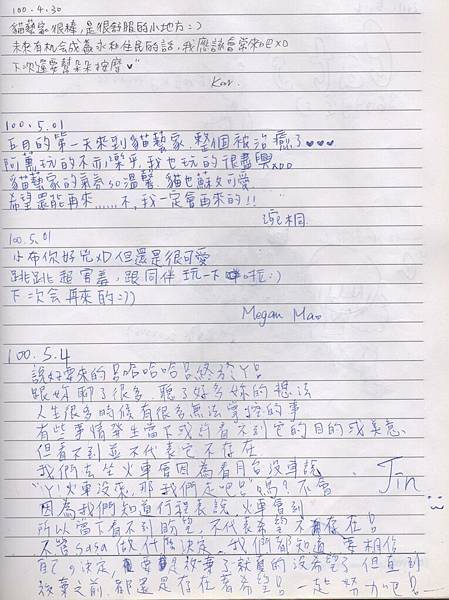 100.4.30
貓藝家很棒,是很舒服的小地方:)
未來有机会成為永和住民的話,我應該會常來吧XD
下次還要幫朵朵按摩♥"
Kar
100.5.01
五月的第一天來到貓藝家,整個被治癒了♥♥♥
阿萬玩的不亦樂乎,我也玩的很盡興XDD
貓藝家的氣氛so溫馨,貓也好可愛
希望還能再來......不,我一定會再來的!!
100.5.01
小布你好兇XD但還是很可愛
跳跳超害羞,跟同伴玩一下啦:)
下次会再來的:))
Megan Mao
100.5.4
說好要來的呂哈哈哈呂終於Y呂
跟妳聊了很多,聽了好多妳的想法
人生很多時候有很多無法掌控的事
有些事情發生當下或許看不到它的目的或美意
但看不到並不代表它不存在
我們去坐火車會因為看月台沒車說
"YY火車沒來,那我們走吧!"嗎?不會
因為我們知道行程表說,火車會到
所以當下看不到盼望,不代表希望不存在!
不管sasa做什麼決定,我們都知道要相信
自己的決定,要是放棄了就真的沒希望了但直到
放棄之前,都還是存在著希望!一起努力吧!
Jin